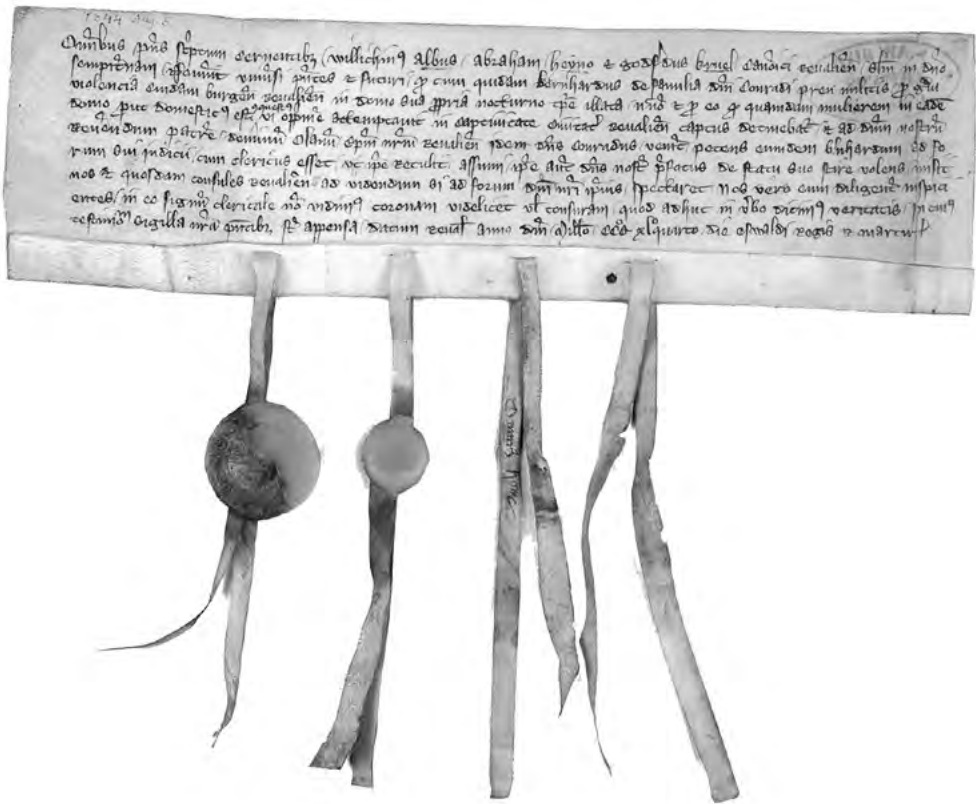 1344 Aug. 5
Omibus pns sceptum cernentibz, Willickinus Albus, Abraham, Heyno et Godfridus Bruel Canonici Revalien, Slm in dno
sempiternam, Noverint vniusi pntes et futuri, qd cum quidam Bernhardus de familia dni Conridi preen militis, pro qdm
violencia cuidam burgen Revalien in domo sua ppria nocturno tpe illata, necnon et pro eo qd quandam mulierem in eadem
domo, put domesticus est vi opprime attemptavit in captivitate Civitat Revalien captus detinebat, et ad dnm nostrum
Revendum patre, dominum Olavum Epm nrm Revalien idem dns Conridus, venit petens eundem Bnhardum ad fo
rum sui iudicii, cum clericus esset, vt ipe retulit, assumi, ipe aut dns nost pfatus de statu suo scire volens, misit
nos et quosdam consules Revalien ad videndum si ad forum dni nri ipius, spectaret Nos vero eum diligent inspici
entes, in eo signum clericale non vidimus coronam videlicet vl tonsuram, quod adhuc in vbo dicimus veritatis, In cuius
testimonium Sigilla nra pntibz, st appensa, datum Reval anno dni Millo CCCo xlquarto, die Oswaldi Regis et martiris